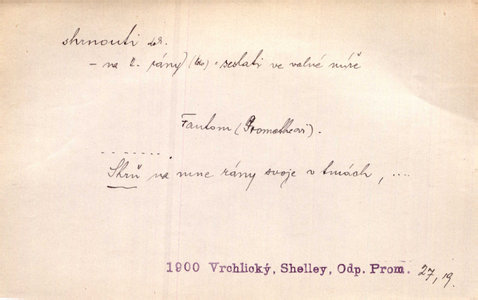 shrnouti dk.
– na č. rány (ko) = seslati ve valné míře
Fantom (Prometheovi).
.......
Shrň na mne rány svoje v tmách, ....
1900 Vrchlický, Shelley, Odp. Prom. 27, 19.